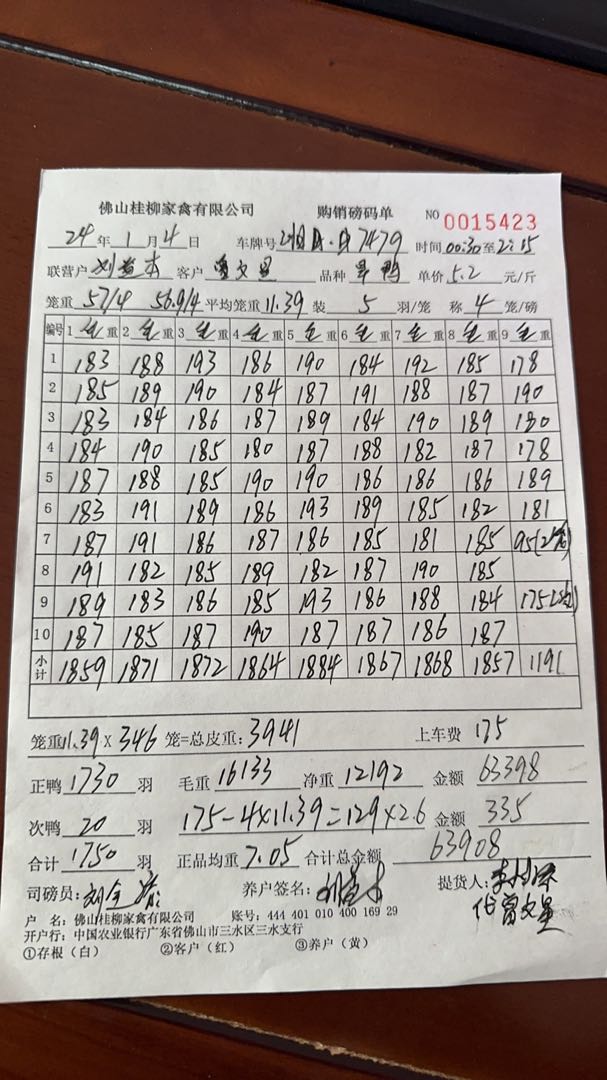 佛山桂柳家禽有限公司 购销磅码单 NO 0015423
24 年 1 月 4 日 车牌号 7479 时间 00:30 至 2:15
联营户 刘益本 客户 曾文星 品种 旱鸭 单价 5.2 元/斤
笼重 57/4 56.9/4 平均笼重 11.39 装 5 羽/笼 称 4 笼/磅
编号 1 毛重 2 毛重 3 毛重 4 毛重 5 毛重 6 毛重 7 毛重 8 毛重 9 毛重
1 183 188 193 186 190 184 192 185 178
2 185 189 190 184 187 191 188 187 190
3 183 184 186 187 189 184 190 189 180
4 184 190 185 180 187 188 182 187 178
5 187 188 185 190 190 186 186 186 189
6 183 191 189 186 193 189 185 182 181
7 187 191 186 187 186 185 181 185 95(2笼)
8 191 182 185 189 182 187 190 185
9 189 183 186 185 193 186 188 184 175
10 187 185 187 190 187 187 186 187
小计 1859 1871 1872 1864 1884 1867 1868 1857 1191
笼重 11.39 X 346 笼=总皮重: 3941 上车费 175
正鸭 1730 羽 毛重 16133 净重 12192 金额 63398
次鸭 20 羽 175-4×11.39=129×2.6 金额 335
合计 1750 羽 正品均重 7.05 合计总金额 63908
司磅员: 养户签名: 刘益本 提货人:
代曾文星
户 名: 佛山桂柳家禽有限公司 账号: 444 401 010 400 169 29
开户行: 中国农业银行广东省佛山市三水区三水支行
①存根（白） ②客户（红） ③养户（黄）